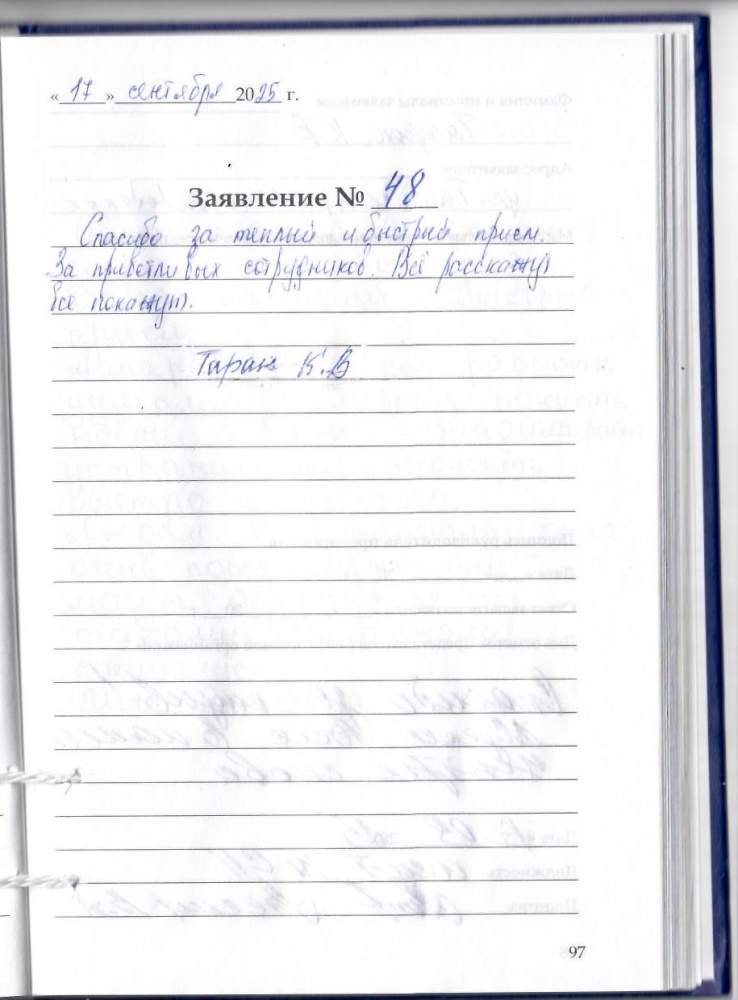 « 17 » сентября 2025 г.
Заявление № 48
Спасибо за теплый и быстрый прием.
За приветливых сотрудников. Всё расскажут
все покажут.
Таран К.В
97